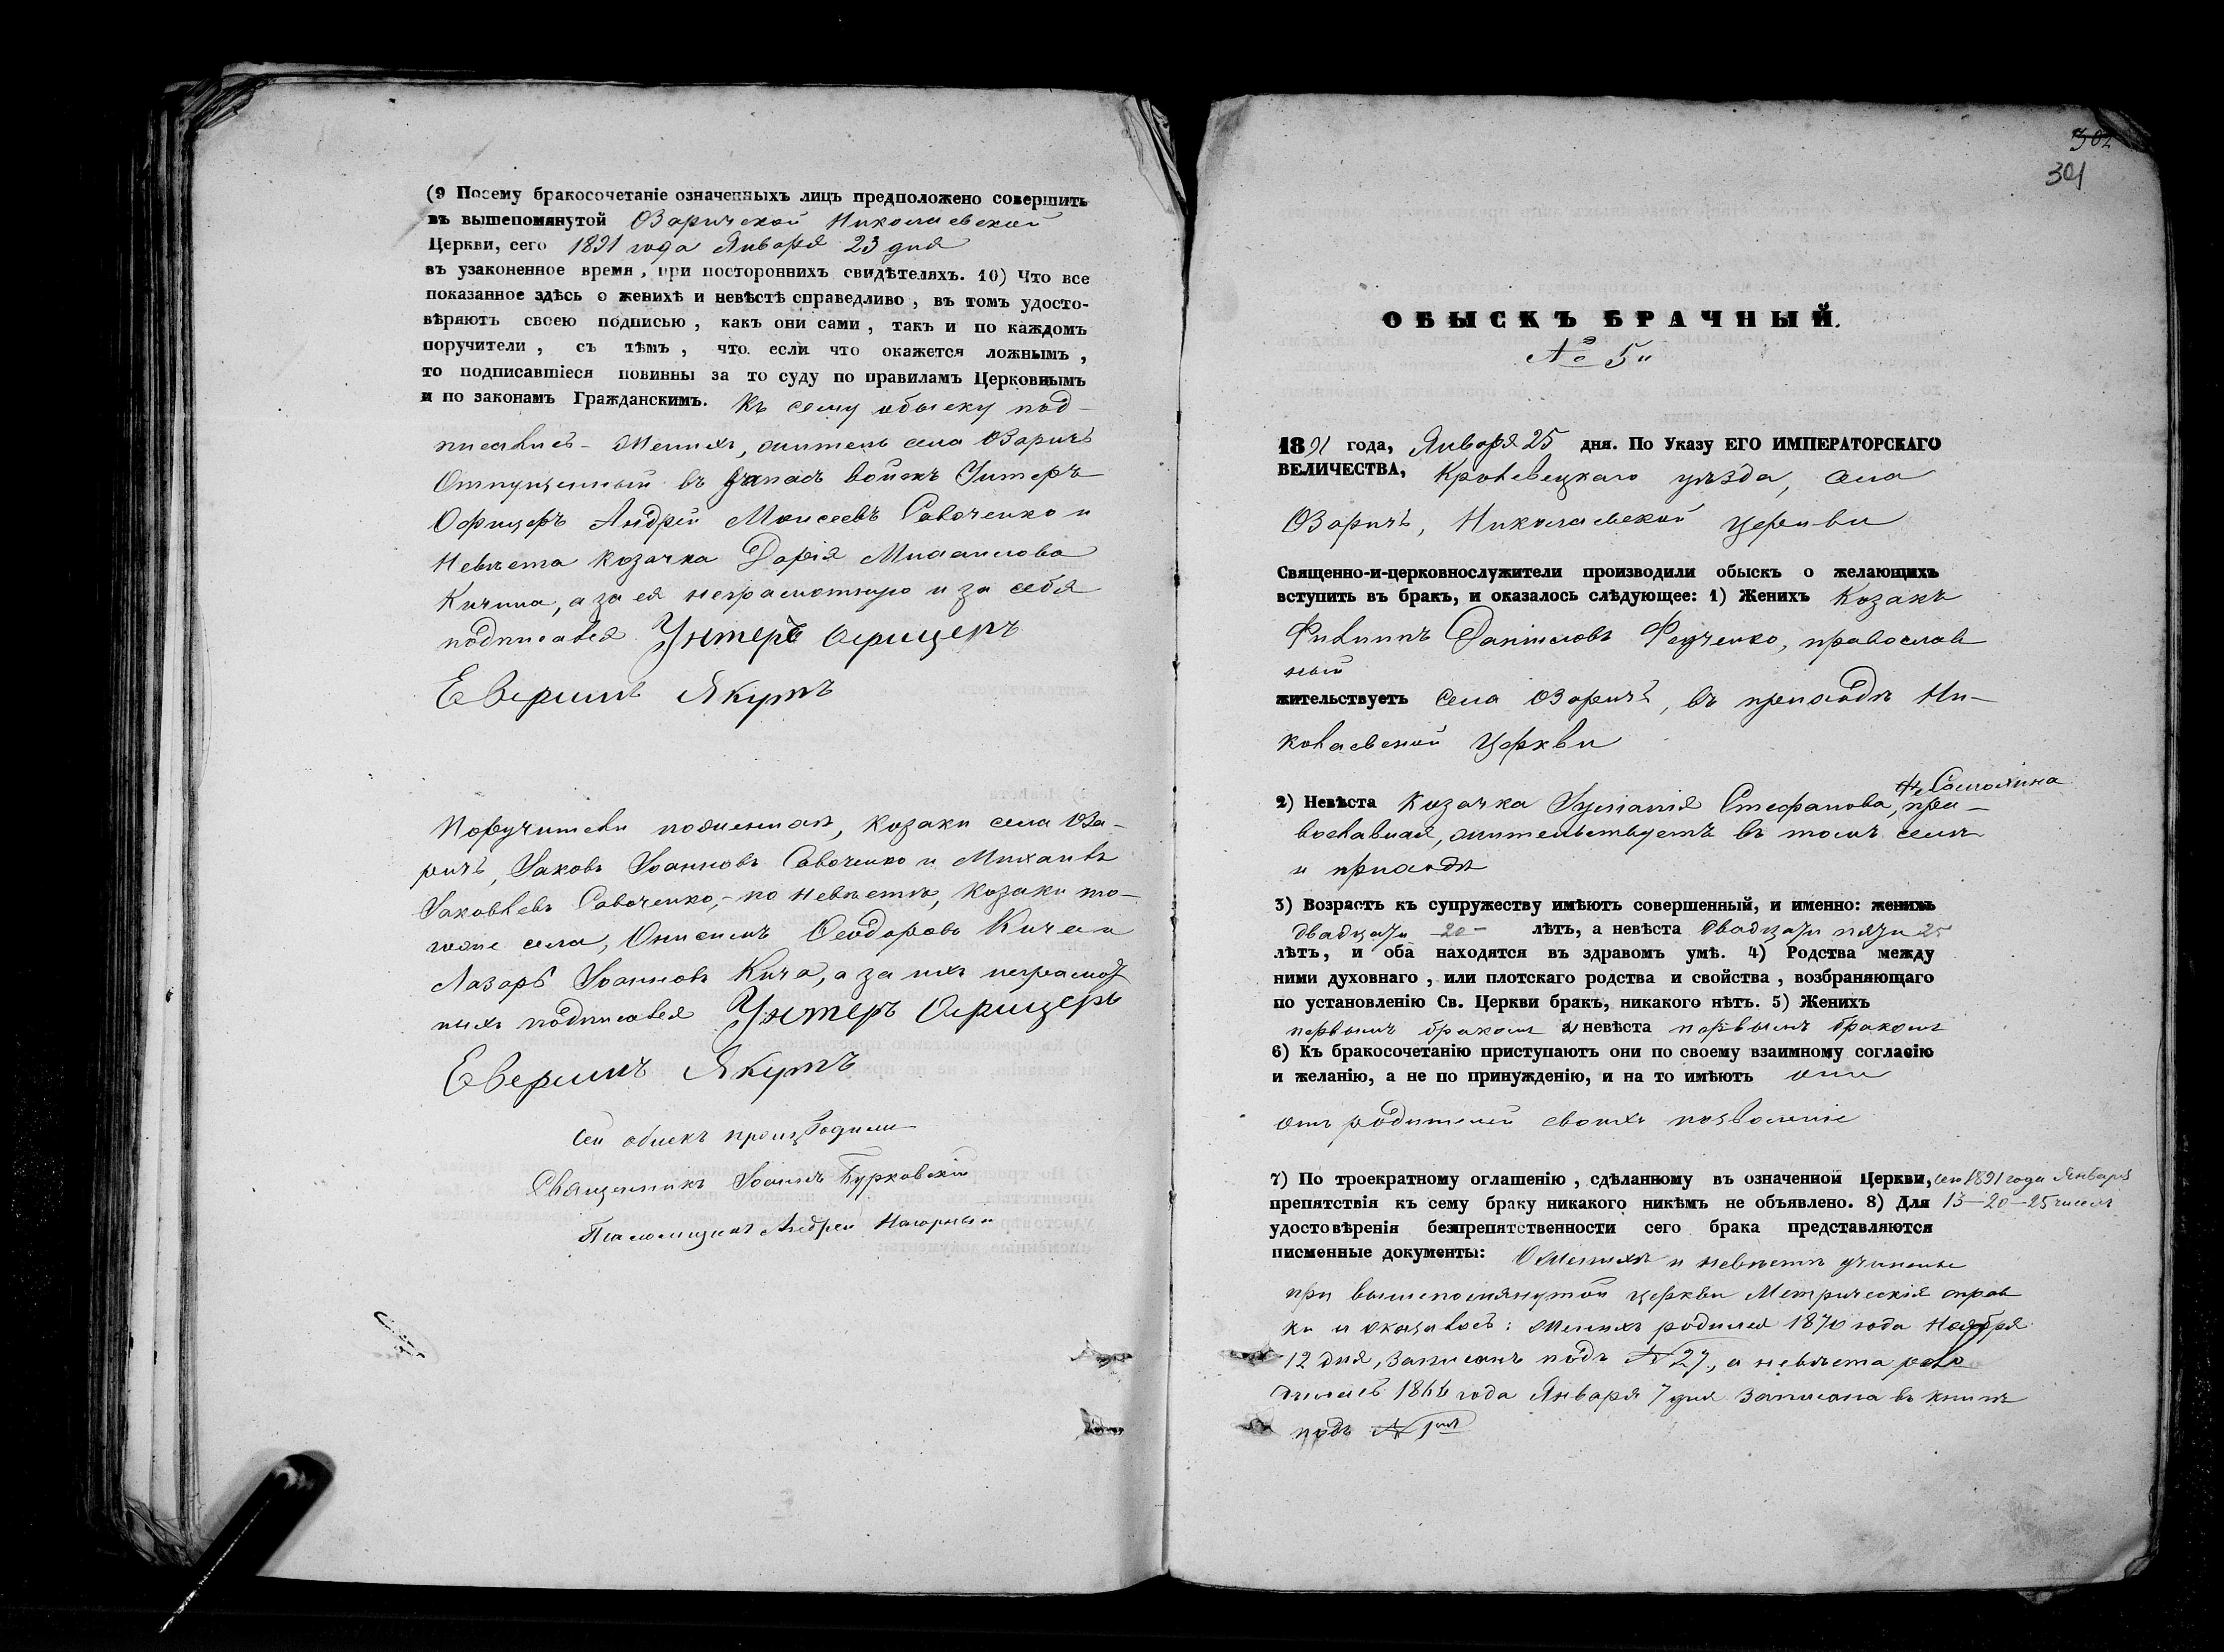 (9 Посему бракосочетаніе означенныхъ лицъ предположено совершить
въ вышепомянутой Озаричской Николаевской
Церкви, сего 1891 года Января 23 дня
въ узаконенное время, при постороннихъ свидѣтеляхъ. 10) Что все
показанное здѣсь о женихѣ и невѣстѣ справедливо, въ томъ удосто-
вѣряютъ своею подписью, какъ они сами, такъ и по каждомъ
поручители, съ тѣмъ, что если что окажется ложнымъ,
то подписавшіеся повинны за то суду по правиламъ Церковнымъ
и по законамъ Гражданскимъ. Къ сему обыску под-
писались - Женихъ, житель села Озаричъ
Отпущенный въ запасъ войскъ Унтеръ
Офицеръ Андрей Моисеевъ Савоченко и
Невѣста козачка Дарія Михаилова
Кичина, а за ея неграмотную и за себя
подписался Унтеръ Офицеръ
Якутъ
Поручители по женихѣ, козаки села Оза-
ричъ, Іаковъ Іоанновъ Савоченко и Михаилъ
Іаковлевъ Савоченко, - по невѣстѣ, козаки то-
гоже села, Онисимъ Феодоровъ Кича и
Лазарь Іоанновъ Кича, а за ихъ неграмот
ныхъ подписался Унтеръ Офицеръ
Якутъ
Сей обыскъ производили
Священникъ Іоаннъ Бурковскій
Псаломщикъ Андрей Нагорный
302
301
ОБЫСКЪ БРАЧНЫЙ.
№ 5й
1891 года, Января 25 дня. По Указу ЕГО ИМПЕРАТОРСКАГО
ВЕЛИЧЕСТВА, Кролевецкаго уѣзда, села
Озаричъ, Николаевской церкви
Священно-и-церковнослужители производили обыскъ о желающихъ
вступить въ бракъ, и оказалось слѣдующее: 1) Женихъ Козакъ
Филиппъ Даніиловъ Федченко, православ
ный
жительствуетъ села Озаричъ, въ приходѣ Ни-
колаевской Церкви
2) Невѣста Козачка Іуліанія Стефанова, Самохина пра-
вославная, жительствуетъ въ томъ селѣ
и приходѣ
3) Возрастъ къ супружеству имѣютъ совершенный, и именно: женихъ
двадцати 20 - лѣтъ, а невѣста двадцати пяти 25
лѣтъ, и оба находятся въ здравомъ умѣ. 4) Родства между
ними духовнаго, или плотскаго родства и свойства, возбраняющаго
по установленію Св. Церкви бракъ, никакого нѣтъ. 5) Женихъ
первымъ бракомъ а невѣста первымъ бракомъ
6) Къ бракосочетанію приступаютъ они по своему взаимному согласію
и желанію, а не по принужденію, и на то имѣютъ они
отъ родителей своихъ позволеніе
7) По троекратному оглашенію, сдѣланному въ означенной Церкви, сего 1891 года Января
препятствія къ сему браку никакого никѣмъ не объявлено. 8) Для 13-20-25 чиселъ
удостовѣренія безпрепятственности сего брака представляются
писменные документы: О женихѣ и невѣстѣ учинены
при вышепомянутой церкви Метрическія справ
ки и оказалось: женихъ родился 1870 года Ноября
12 дня, записанъ подъ № 27, а невѣста ро
дилась года Января 7 дня записана въ книгѣ
подъ № 1мъ